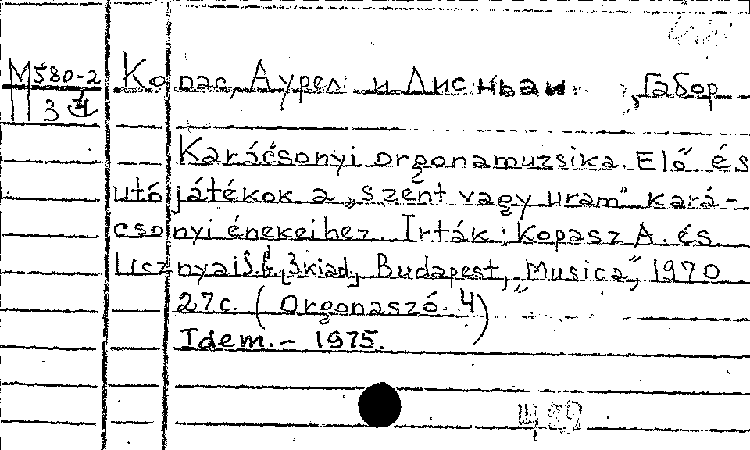 М580-2
34
Копас, Аурел и Лисньаи, Габор
Karácsonyi orgonamuzsika. Elő és
utójátékok a „szent vagy Uram" kará-
csonyi énekeihez. Irták: Kopasz A. és
Lisznyai [3kiad], Budapest, „Musica", 1970
27c. (Orgonaszó. 4)
Idem. – 1975.